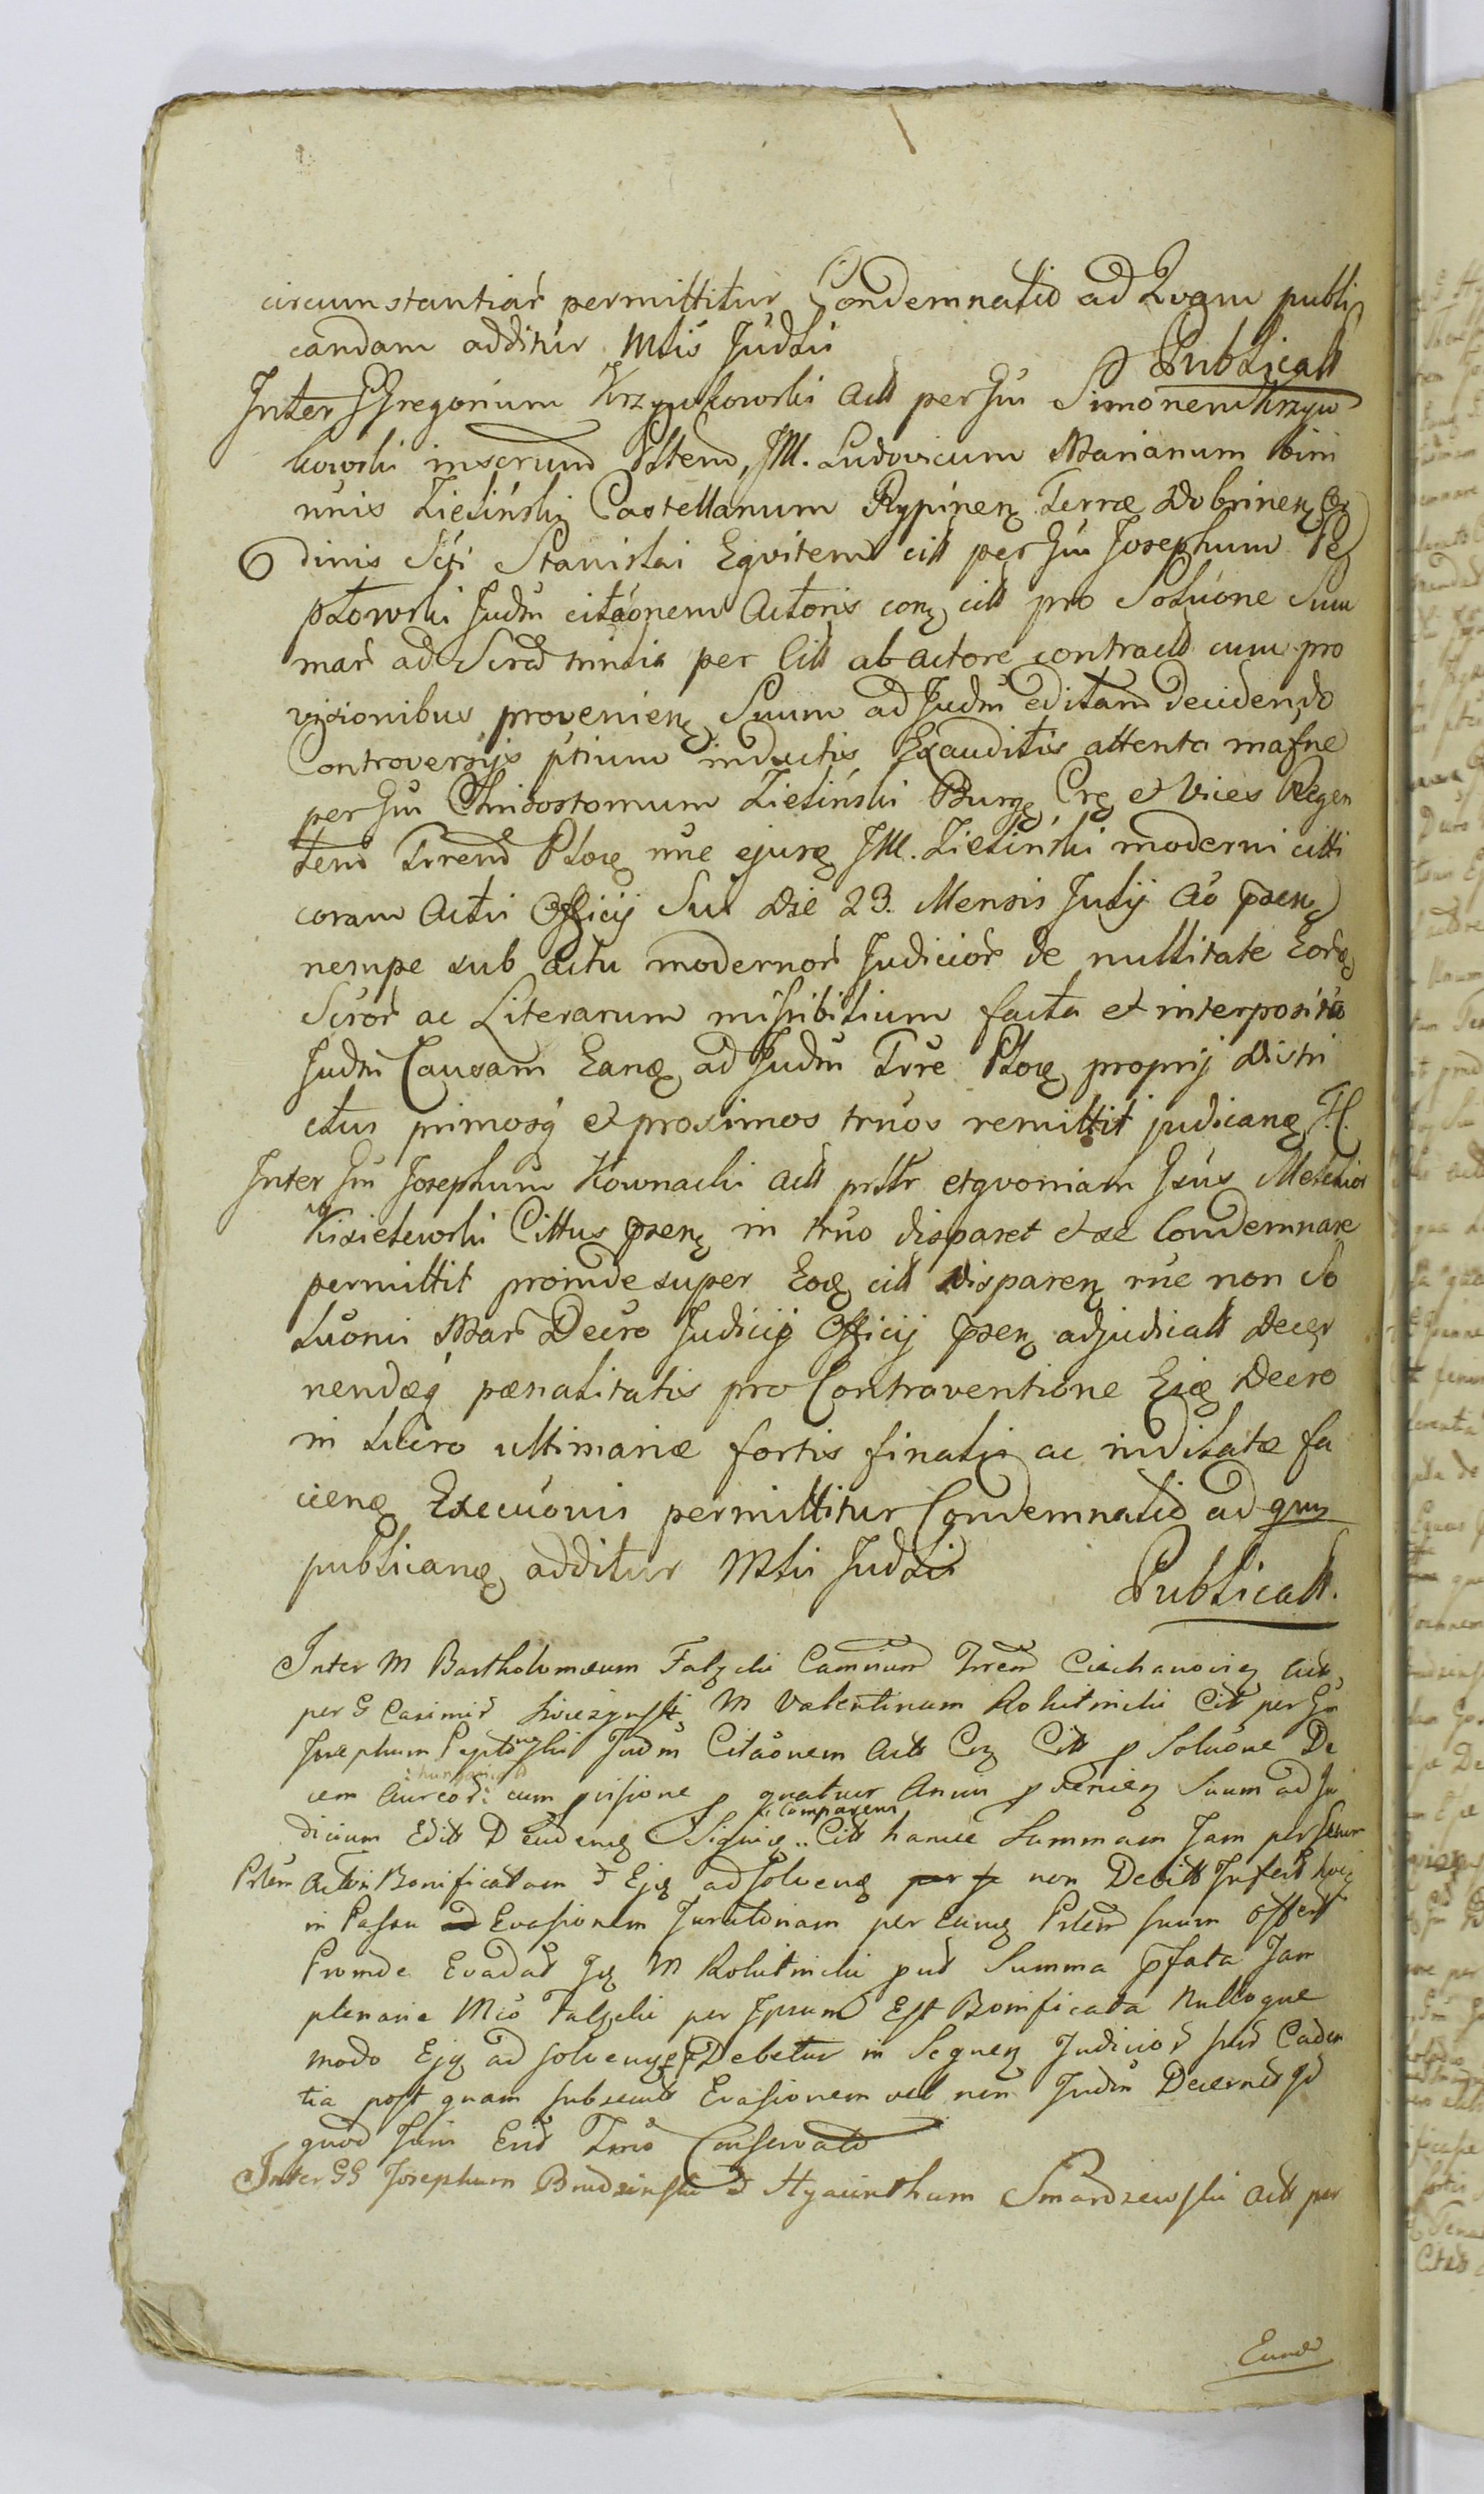 circumstantiar permittitur Condemnatio ad Quam publi
candam additur Mtis Judtii
Publicatt
Inter GGregorium Krzywkowski Actt per Gm Simonem Krzyw
kowski inscrum Pltem, JM. Ludovicum Marianum bini
minis Zieliński Castellanum Rypinen Terræ Dobrinen Or
dinis Scti Stanislai Eqvitem citt per Gm Josephum Pe
ptowski Judm citaonem Actoris con citt pro Soluone Sum
mar ad Scrad trindia per Citt ab actore contractt cum pro
visionibus provenien Suum ad Judm editam decidendo
Controversijs ptium inductis Exauditis attenta mafne
per Gm Chrisostomum Zieliński Burg Crg et Vices Regen
tem Trrem Ploc nne ejusq JM. Zieliński moderni citti
coram Actis Officij Sui die 23. Mensis Julij Ao psen
nempe sub actu modernor Judicior de nullitate Eord
Scror ac Literarum missibilium facta et interposita
Judm Causam Eanq ad Judm Trre Ploc proprij distri
ctus primosq et proximos trnos remittit judicanq H.
Inter Gm Josephum Kownacki Actt prttr et qvoniam Gsus Melchior
Kisielewski Cittus psen in trno disparet et se Condemnare
permittit proinde super Eoq citt disparen rne non So
luonis Mar Decro Judicij Officij psen adjudicatt decer
nendæq pænalitatis pro Contraventione Ejq Decro
in lucro ultimariæ fortis finalis ac indilatæ fa
cienq Execuonis permittitur Condemnatio ad qm
publicanq additur Mtii Judtii
Publicatt.
Inter M Bartholomæum Falęcki Camrium Trrem Ciechanovien Actt
per G Casimir M Valentinum Rokitnicki Citt per Gm
Josephum Peptowski Judm Citaonem Actt Con Citt p Soluone De
cem Aureor: cum pvisione p quatuor Annis pvenien Suum ad Ju
dicium Editt Comparens Citt hancce Summam Jam per Suum
Pltem Actori Bonificatam et Ejq adsolvenq non Debitt Infert
in Passu Evasionem Juratoriam per eunq Pltem suum offert
Proinde Evadat Jq M Rokitnicki quod Summa pfata Jam
plenarie Mco Falęcki per Ipsum Est Bonificata Nulloque
modo Ejq ad solvenq Debetur in Sequen Judicior suor Caden
tia post quam subsecutt Evasionem vel non Judm Decernet Id
quod Juris Erit Trno Conservato
Inter GG Josephum Brudzinski et Hyacinthum Smardzewski Actt per
Eund